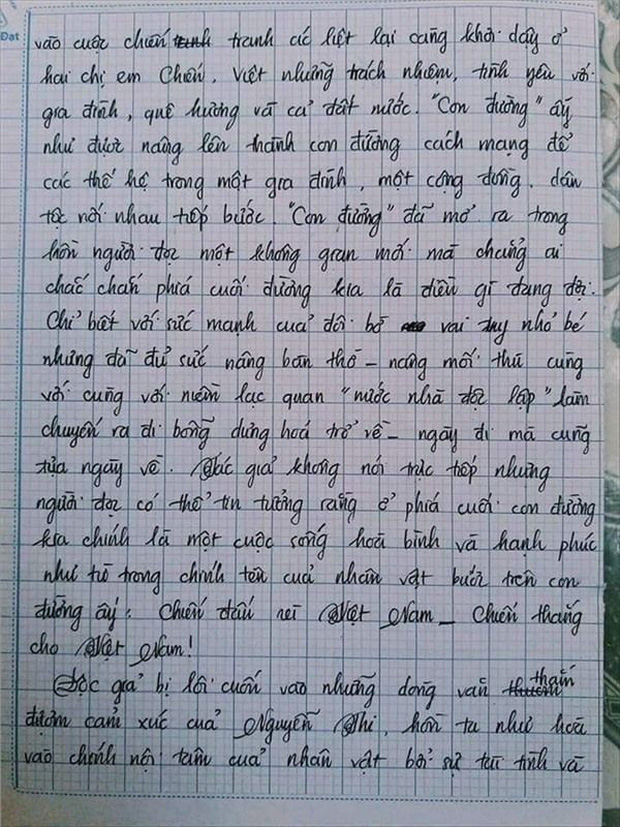 Đạt
vào cuộc chiến tranh ác liệt lại càng khơi dậy ở
hai chị em Chiến, Việt những trách nhiệm, tình yêu với
gia đình, quê hương và cả đất nước. "Con đường" ấy
như được nâng lên thành con đường cách mạng để
các thế hệ trong một gia đình, một cộng đồng, dân
tộc nối nhau tiếp bước. "Con đường" đã mở ra trong
hồn người đọc một không gian mới mà chẳng ai
chắc chắn phía cuối đường kia là điều gì đang đợi.
Chỉ biết với sức mạnh của đôi bờ vai tuy nhỏ bé
nhưng đã đủ sức nâng bàn thờ - nặng mối thù cùng
với cùng với niềm lạc quan "nước nhà độc lập" làm
chuyến ra đi bỗng dưng hoá trở về - ngày đi mà cũng
tựa ngày về. Tác giả không nói trực tiếp nhưng
người đọc có thể tin tưởng rằng ở phía cuối con đường
kia chính là một cuộc sống hoà bình và hạnh phúc
như từ trong chính tên của nhân vật bước trên con
đường ấy: Chiến đấu Việt Nam - Chiến thắng
cho Việt Nam!
Độc giả bị lôi cuốn vào những dòng văn thấm
đượm cảm xúc của Nguyễn Thi, hồn ta như hoà
vào chính nội tâm của nhân vật bởi sự tài tình và